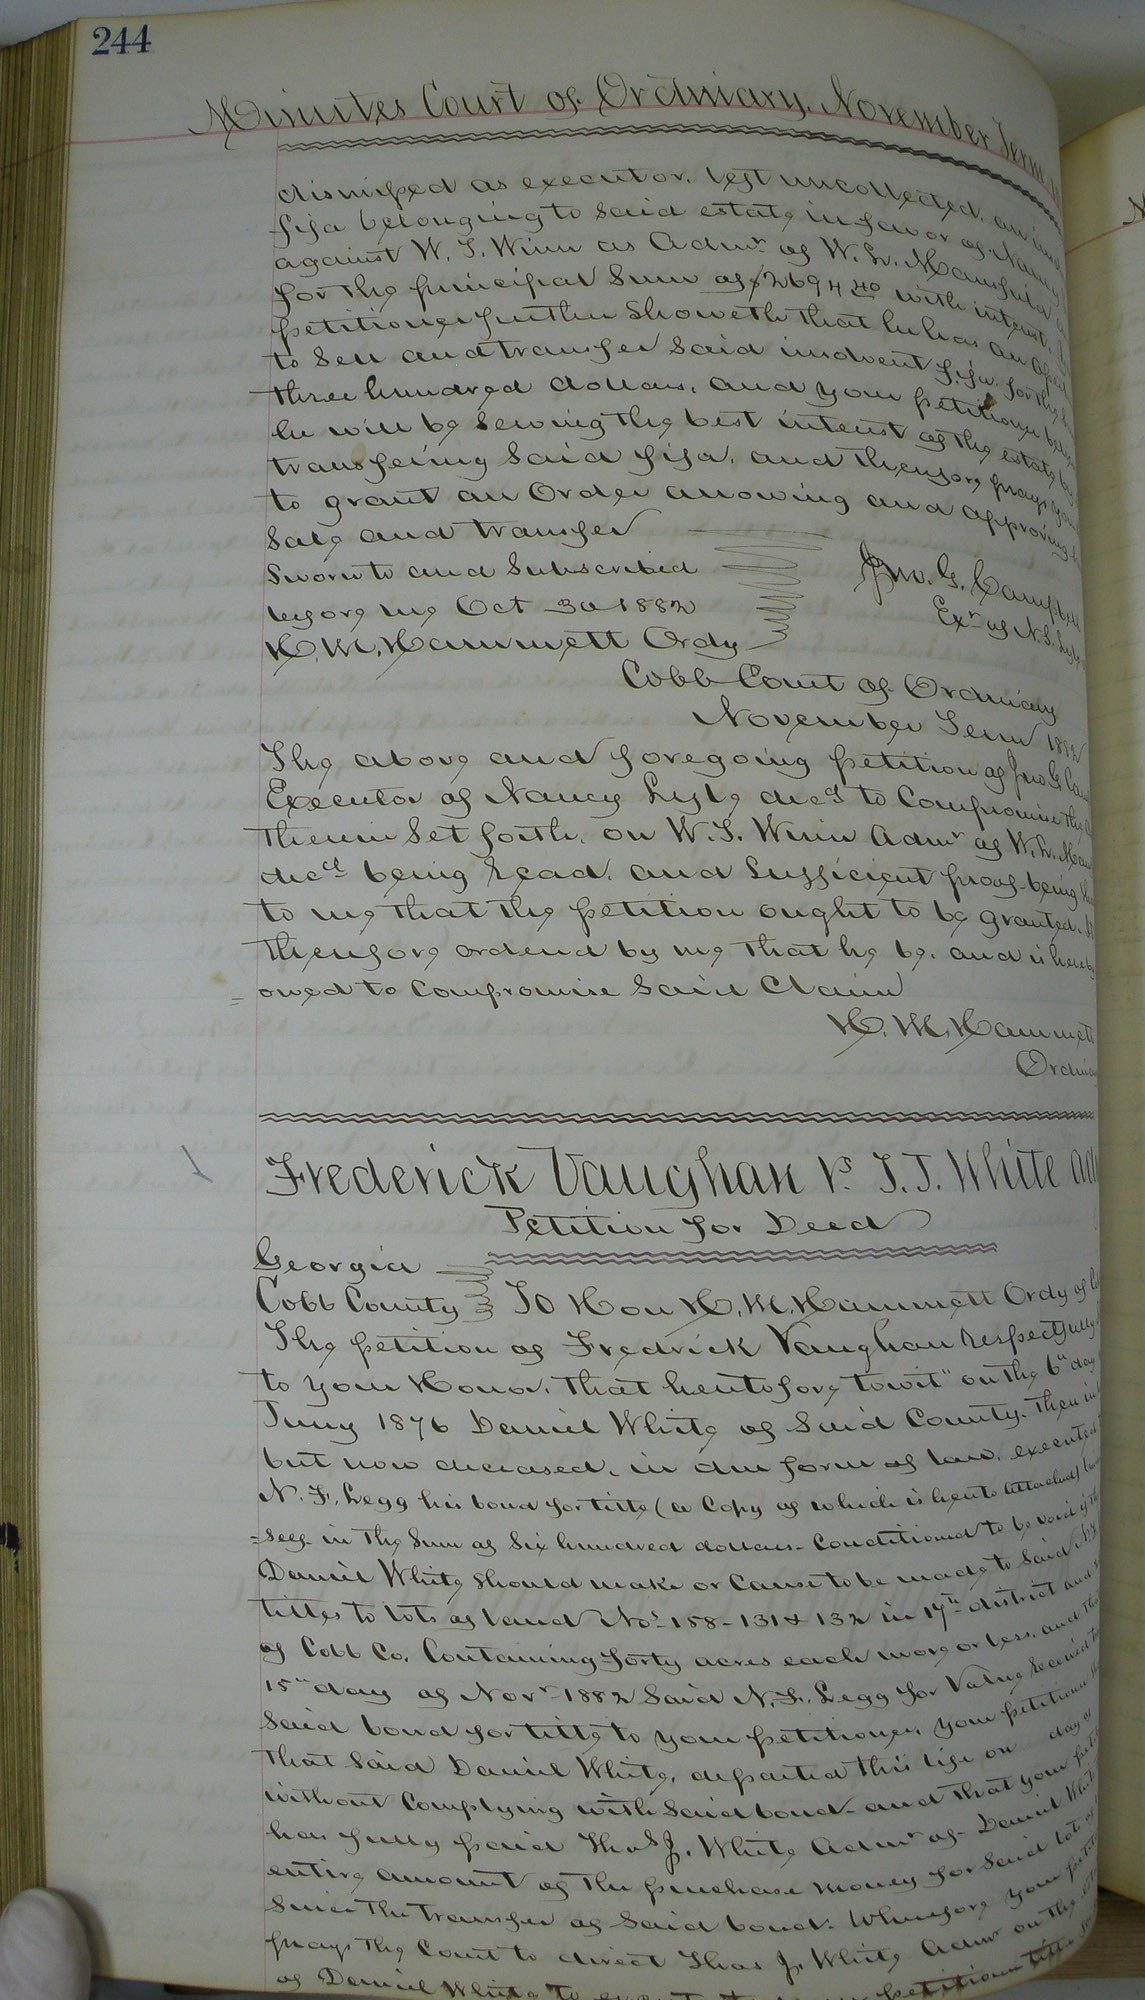 244
Minutes Court of Ordinary, November Term
dismissed as executor, left uncollected, an
fifa belonging to said estate in favor of Nancy
against W. J. Winn as Admr of W. L. Mansfield
for the principal sum of $2694 40 with interest.
petitioner further showeth that he has an
to sell and transfer said insolvent fifa for the
three hundred dollars, and your petitioner
he will be serving the best interest of the estate by
transfering said fifa, and therefore prays
to grant an Order allowing and approving
sale and transfer
Sworn to and subscribed
before me Oct 30 1882
H. M. Hammett Ordy
Jno. G. Campbell
Exr of N. S. Lyle
Cobb Court of Ordinary
November Term 1882
The above and foregoing petition of Jno G
Executor of Nancy Lyle decd to Compromise the
therein set forth, on W. J. Winn Admr of W. L.
decd being read, and sufficient proof being
to me that the petition ought to be granted.
therefore orderd by me that he be, and is hereby
=owed to compromise said Claim
H. M. Hammett
Ordinary
Frederick Vaughan vs. T. J. White
Petition for Deed
Georgia
Cobb County To Hon H. M. Hammett Ordy of
The petition of Fredrick Vaughan respectfully
to your Honor, that heretofore towit" on the 6th day
June 1876 Daniel White of said County, then in
but now deceased, in due form of law, executed
N. F. Legg his bond for title (a Copy of which is hereto attached)
=self in the sum of six hundred dollars - Conditioned to be void if
Daniel White should make or cause to be made to said
titles to lots of land Nos 158 - 131 & 132 in 17th district and
of Cobb Co. Containing forty acres each more or less, and
15th day of Novr 1882 said N. F. Legg for value received
said bond for title to your petitioner, your petitioner
that said Daniel White, departed this life on day of
without complying with said bond - and that your
has fully paid Thos J. White Admr of Daniel White
entire amount of the purchase money for said lot of
since the transfer of said bond. Wherefore your
prays the Court to direct Thos J. White Admr on the
of Daniel White to petitioner title